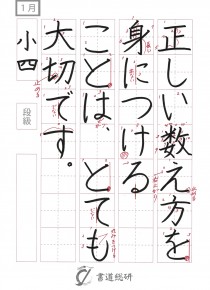 正しい数え方を
身につける
ことは、とても
大切です。
1月
小四
段級
書道総研